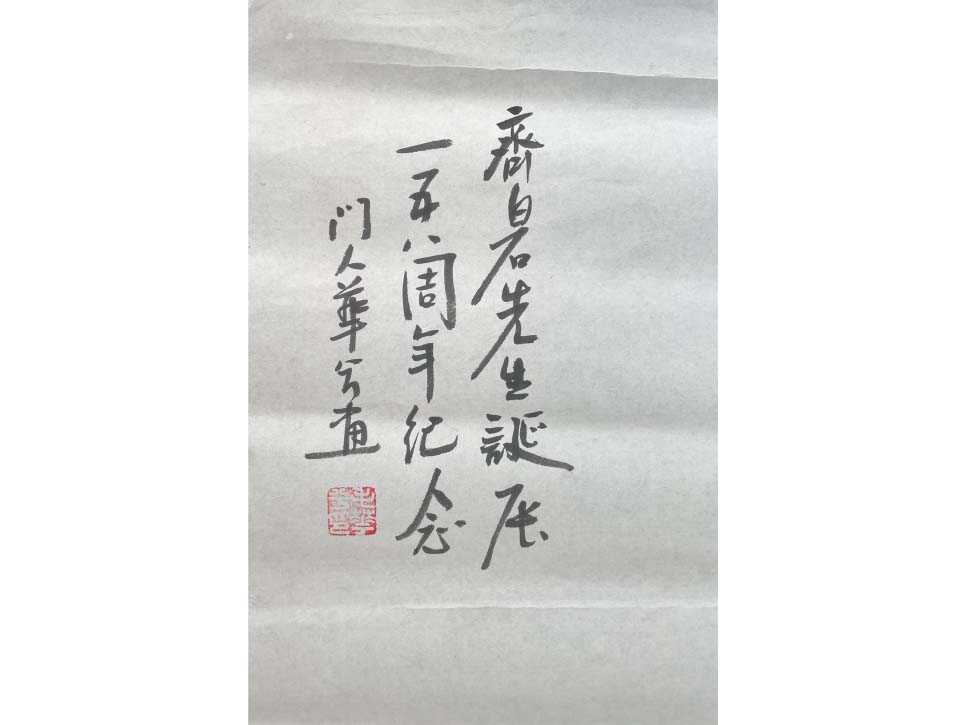 齊白石先生誕辰
一五八周年纪念
门人華兮画